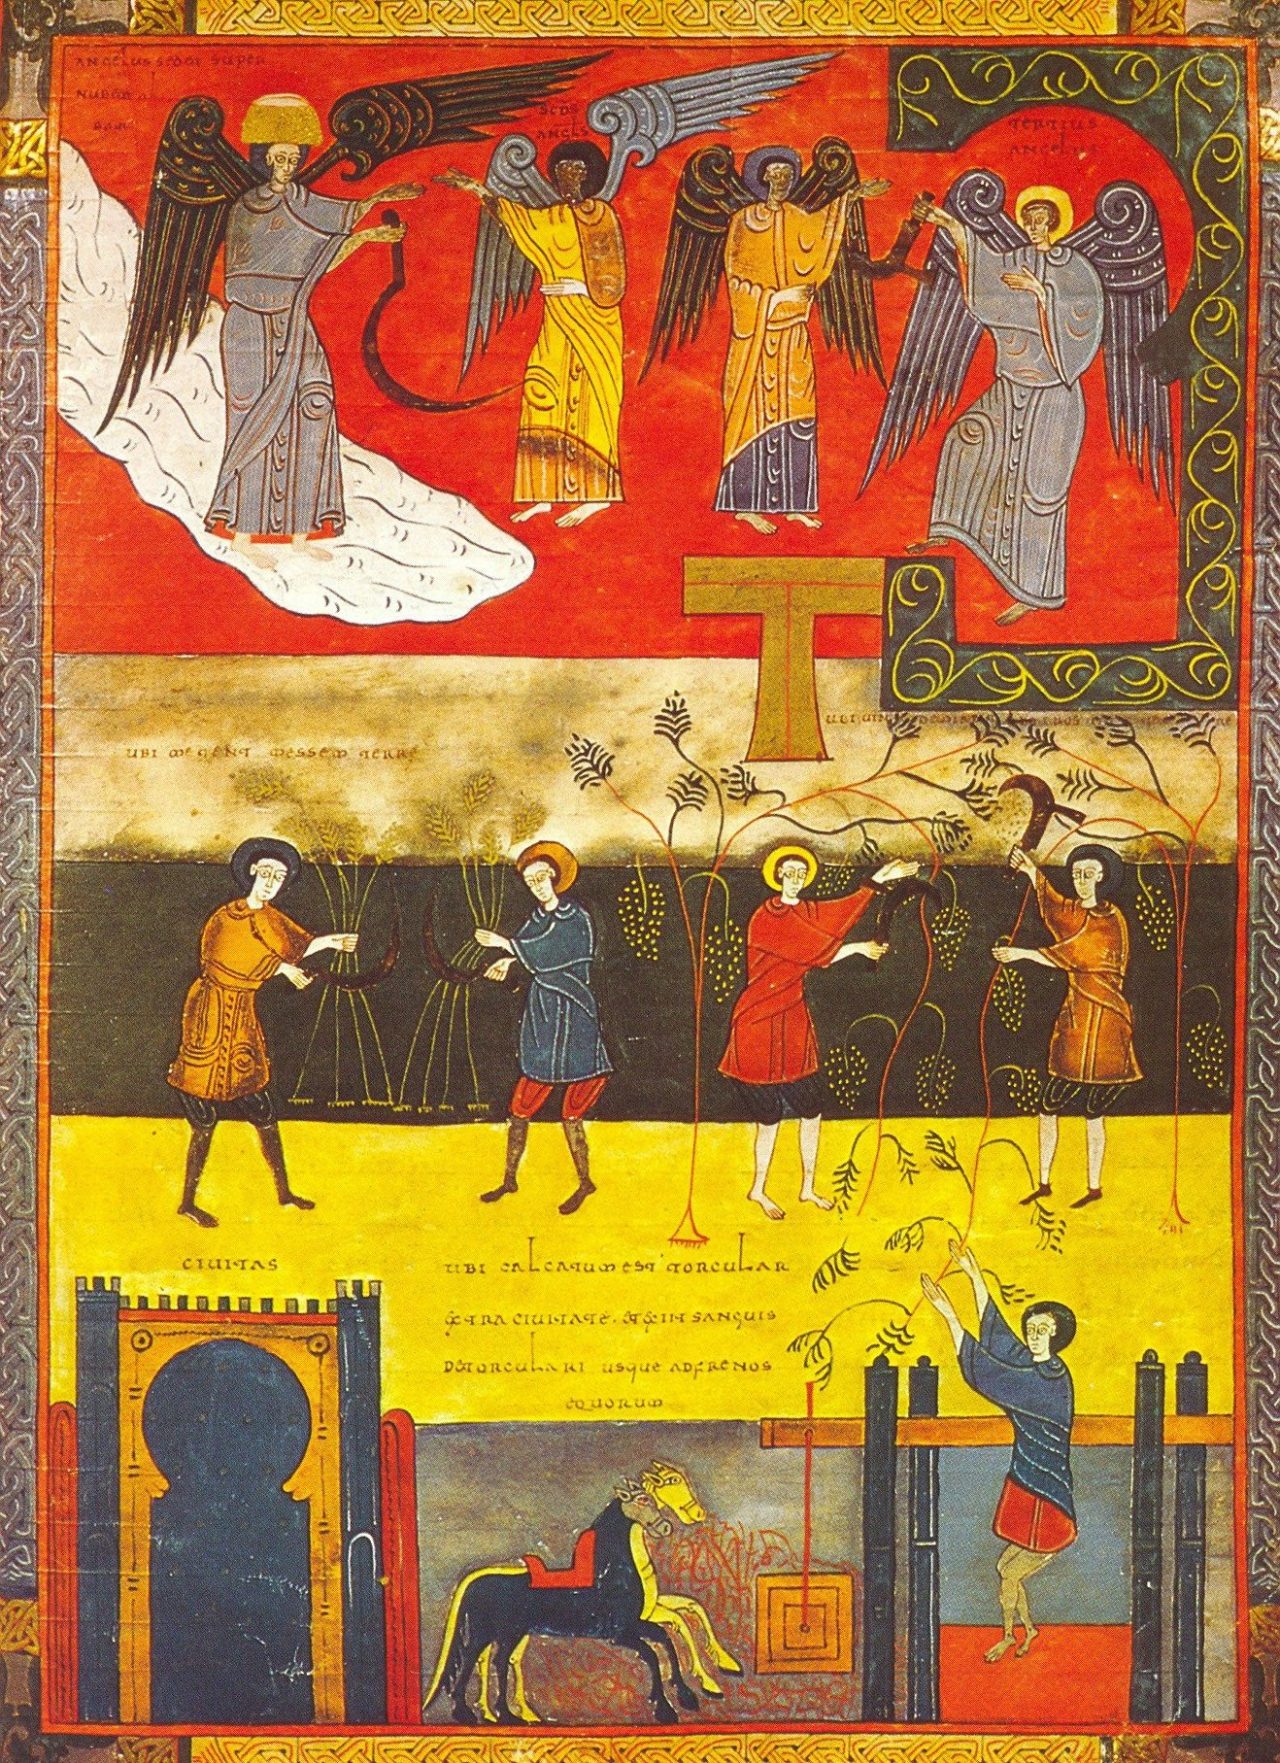 ANGELUS SEDET SUPER
NUBEM
SCDS
ANGLS
TERTIUS
ANGELUS
UBI METENT MESSEM TERRE
UBI
CIUITAS
UBI CALCATUM EST TORCULAR
EXTRA CIUITATE. ET EXIIT SANGUIS
DE TORCULARI USQUE AD FRENOS
EQUORUM